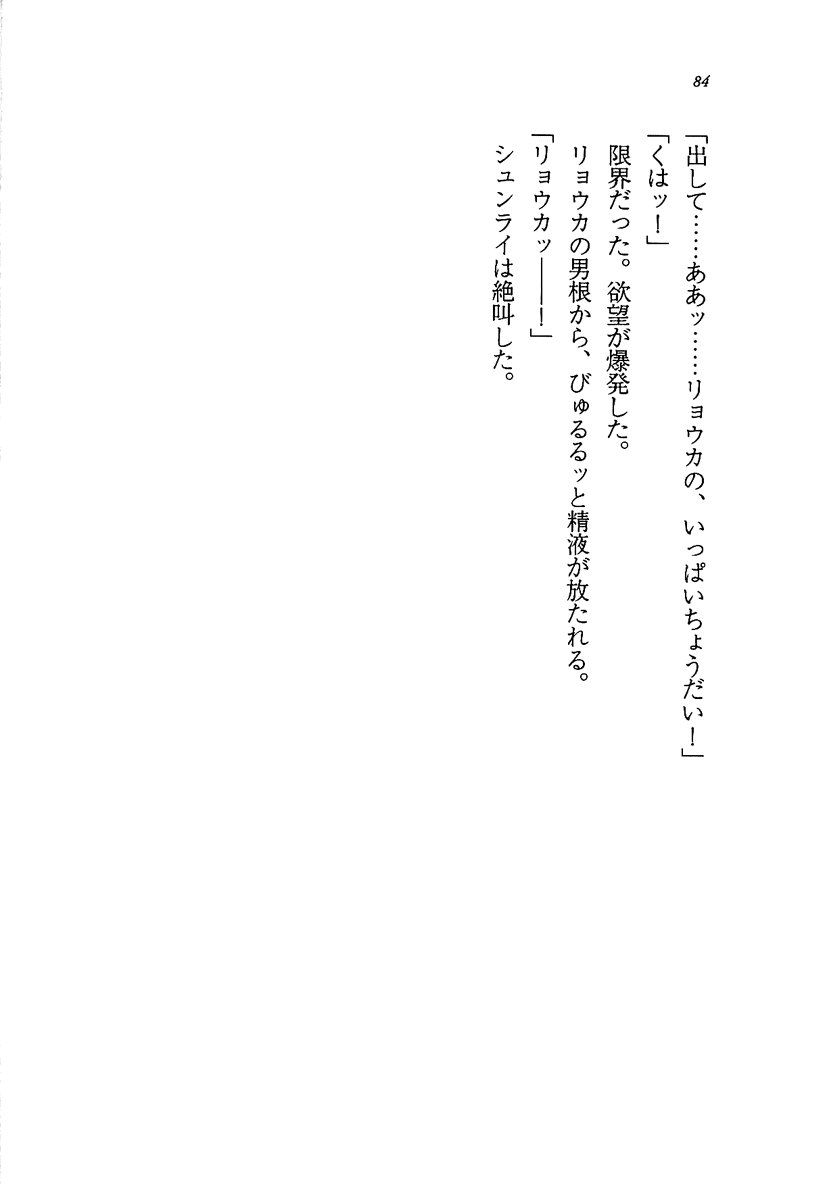 84
「出して……ああッ……リョウカの、いっぱいちょうだい！」
「くはッ！」
限界だった。欲望が爆発した。
リョウカの男根から、びゅるるッと精液が放たれる。
「リョウカッ――！」
シュンライは絶叫した。